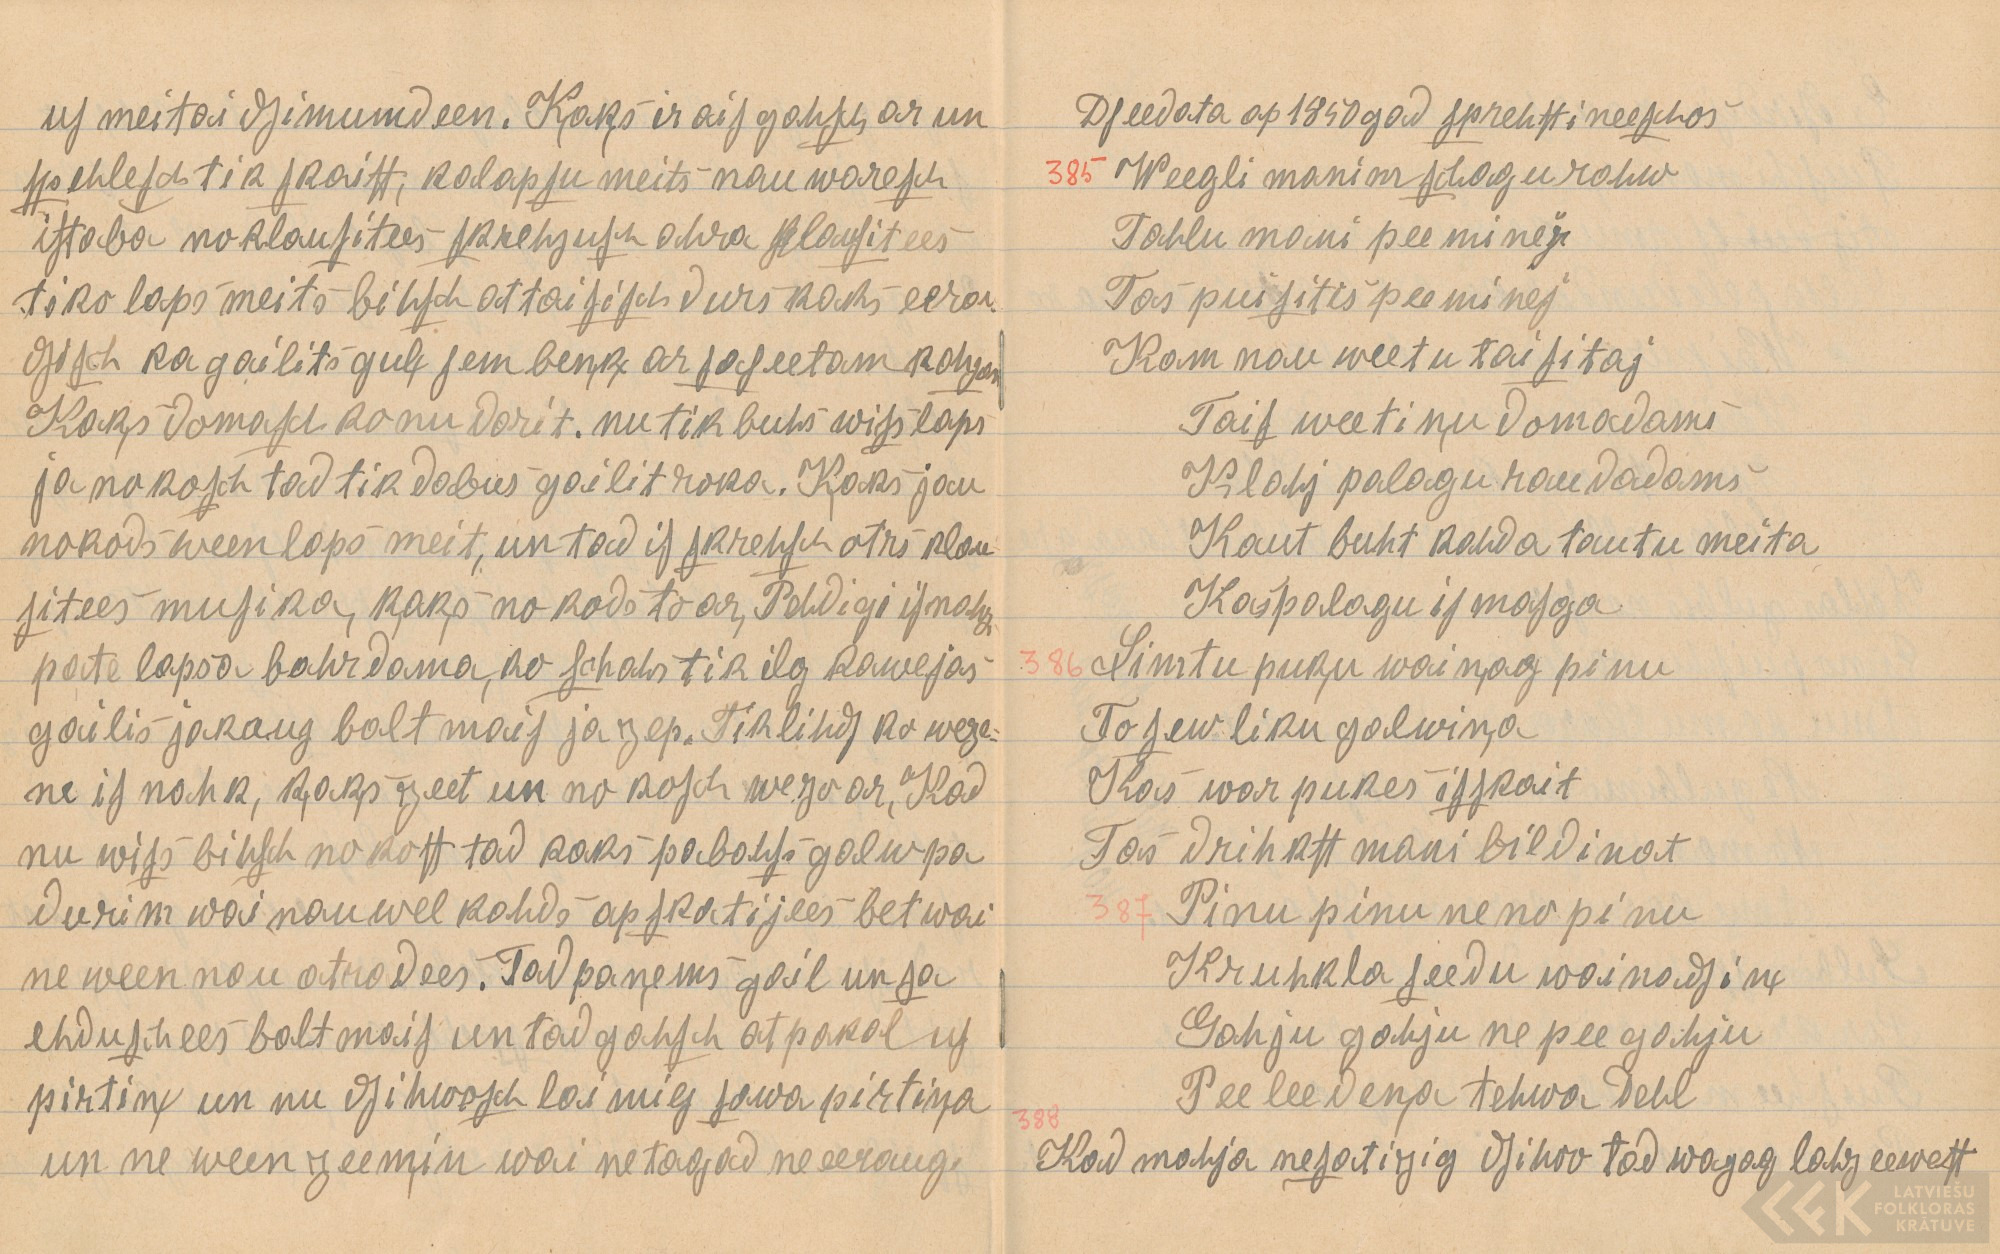 uſ meitai dſimumdeen. Kaķs ir aiſgahſch ar un
ſpehleſch tik ſkaiſt, kalapſu meits nau wareſch
iſtaba noklauſitees ſkrehzuſch ahra klauſitees
tiko laps meits bihſch attaiſiſch durs kaks eerau-
dſiſch ka gailits guļ ſem beņķ ar ſaſeetam kahjam
Kaķs domaſch ko nu darit. nu tik buhs wiſs laps
ja nokoſch tad tik dabus gailit roka. Kaķs jau
nokods ween laps meit, un tad iſſkrehſch otrs klau
ſitees muſika, kaķs nokods to ar, Pehdigi iſnahz
pate lapsa bahrdama, ko ſchahs tik ilg kawejas
gailis jakaug balt maiſ jazep. Tiklihdſ ko weze-
ne iſ nahk, kaķs zeet un nokoſch wezo ar, Kad
nu wiſs bihſch nokoſt tad kaks pabahſs galw pa
durim wai nau wel kahds apſkatijees bet wai
ne ween nau atradees. Tad paņems gail un ſa
ehduſchees balt maiſ un tad gahſch atpakal uſ
pirtiņ un nu dſihwoſch laimig ſawa pirtiņa
un ne ween zeemiņ wai netagad ne eeraug.
Dſeedata ap 1850 gad ſprehſti neeſchos
385 Weegli manim ſchagu rahw
Tahlu mani peeminej
Tas puiſitis peeminej
Kam nau weetu taiſitaj
Taiſ weetiņu domadams
Klahj palagu raudadams
Kaut buht kahda tautu meita
Kas palagu iſmaſga
386 Simtu puķu wainag pinu
To ſew liku galwiņa
Kas war pukes iſſkait
Tas drihkſt mani bildinat
387 Pinu pinu ne nopinu
Kruhkla ſeedu wainadſiņ
Gahju gahju ne peegahju
Pee leedeņa tehwa dehl
388
Kad mahja neſatizig dſihwo tad wajag lahz eeweſt
LATVIEŠU
FOLKLORAS
KRĀTUVE